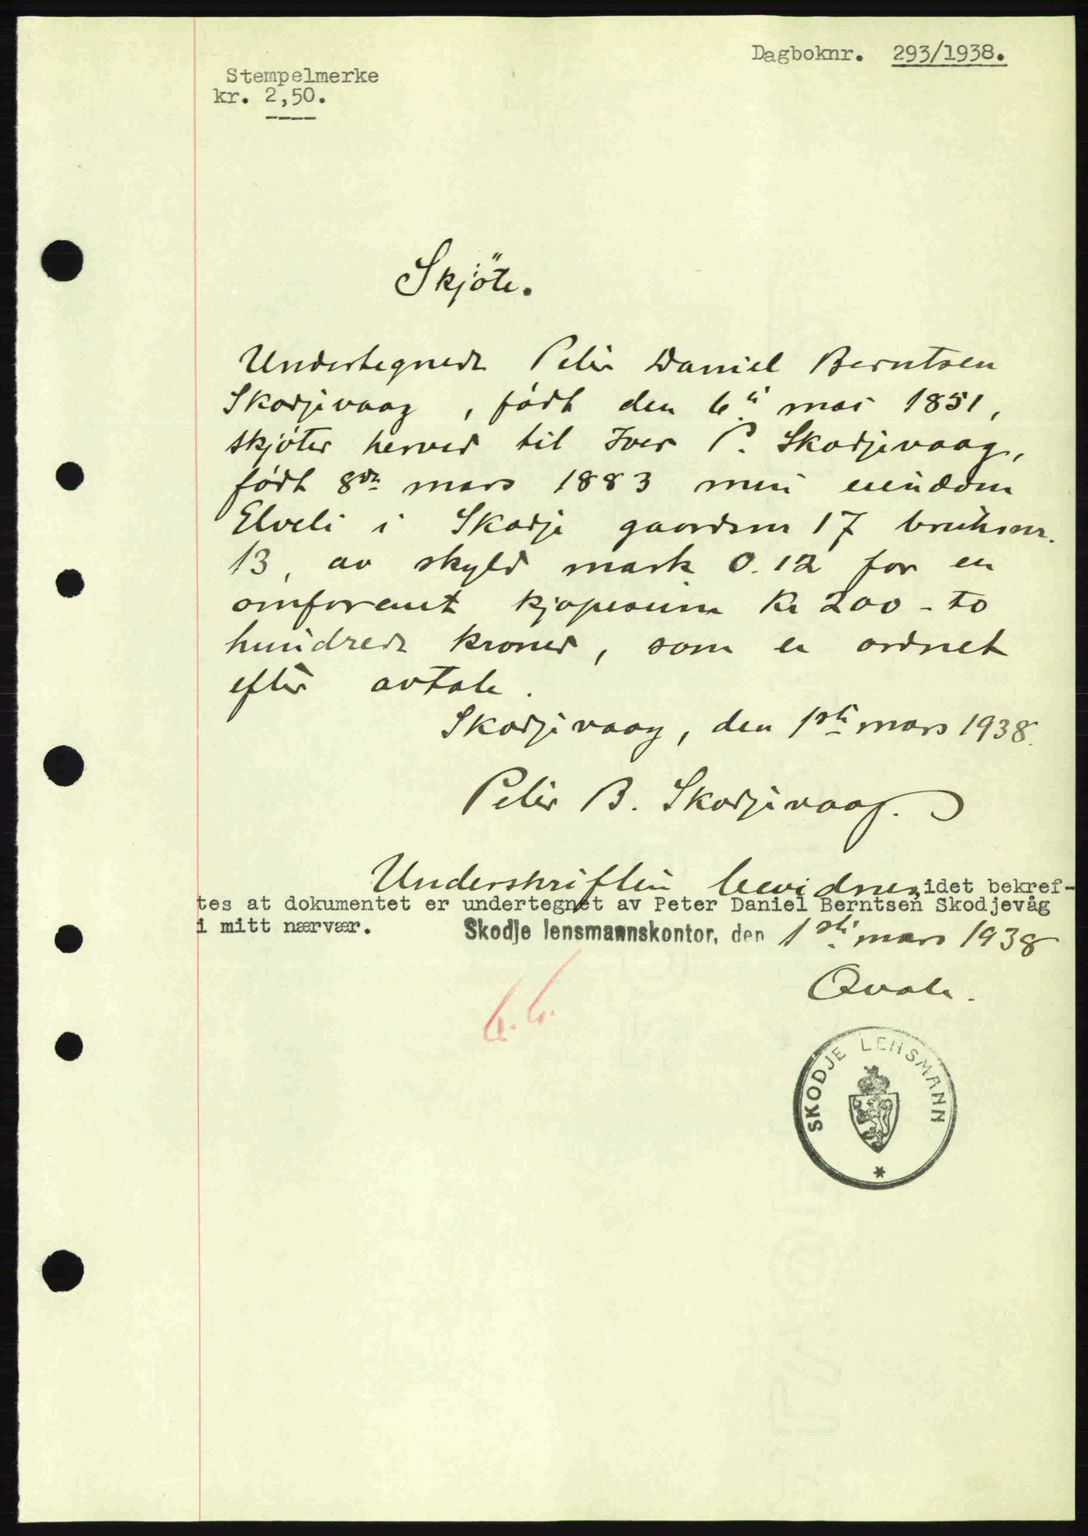 Dagboknr. 293/1938.
Stempelmerke
kr. 2,50.
Skjöte.
Undertegnede Peter Daniel Berntsen
Skodjevaag, födt den 6te mai 1851,
skjöter herved til Iver P. Skodjevaag,
födt 8de mars 1883 min eiendom
Elveli i Skodje gaardsnr 17 bruksnr.
13, av skyld mark 0.12 for en
omforent kjöpesum Kr 200 - to
hundrede kroner, som er ordnet
efter avtale.
Skodjevaag, den 1ste mars 1938.
Peter B. Skodjevaag.
Underskriften bevidnes, idet bekref-
tes at dokumentet er undertegnet av Peter Daniel Berntsen Skodjevåg
i mitt nærvær.
Skodje lensmannskontor, den 1ste mars 1938
Qvale.
SKODJE LENSMANN